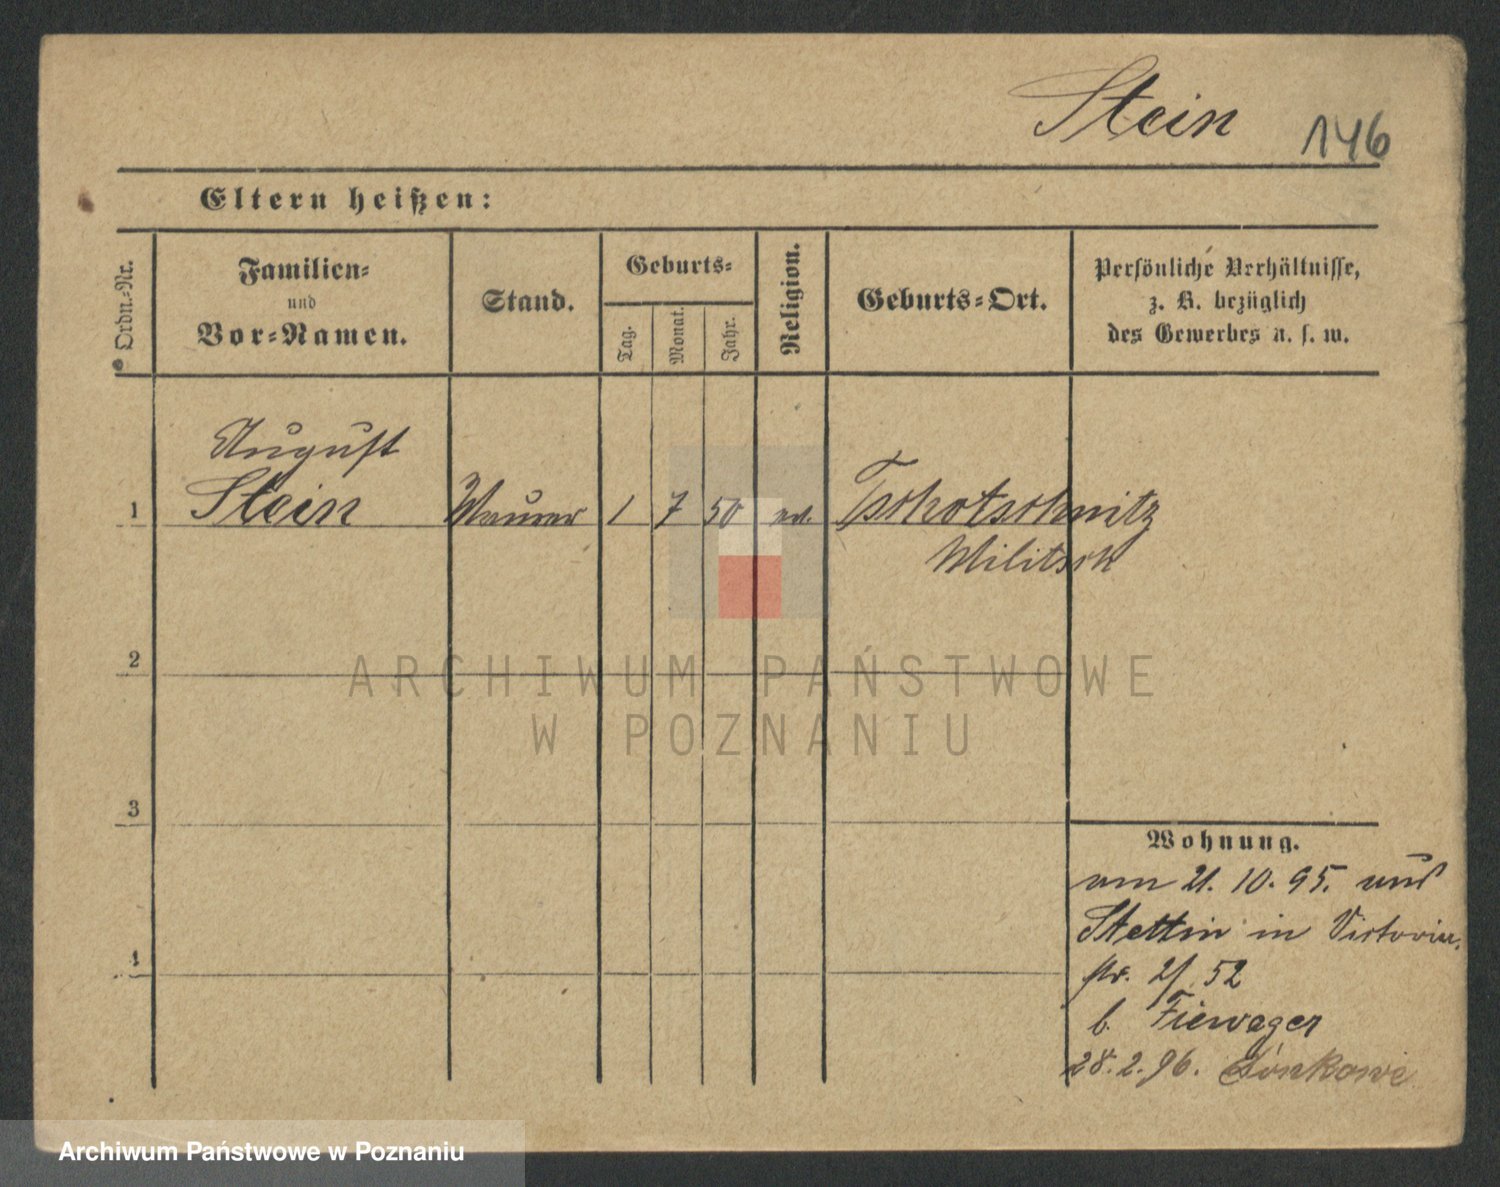 Stein 146
Eltern heißen:
Ordn.-Nr.
Familien-
und
Vor-Namen.
Stand.
Geburts-
Tag.
Monat.
Jahr.
Religion.
Geburts-Ort.
Persönliche Verhältnisse,
z. B. bezüglich
des Gewerbes u. s. w.
August
1 Stein Maurer 1 7 50 ev. Tschotschwitz
Militsch
2
3
4
Wohnung.
am 21. 10. 95. aus
Stettin in Victoria
str. 21/52
b.
28. 2. 96.
ARCHIWUM PAŃSTWOWE
W POZNANIU
Archiwum Państwowe w Poznaniu